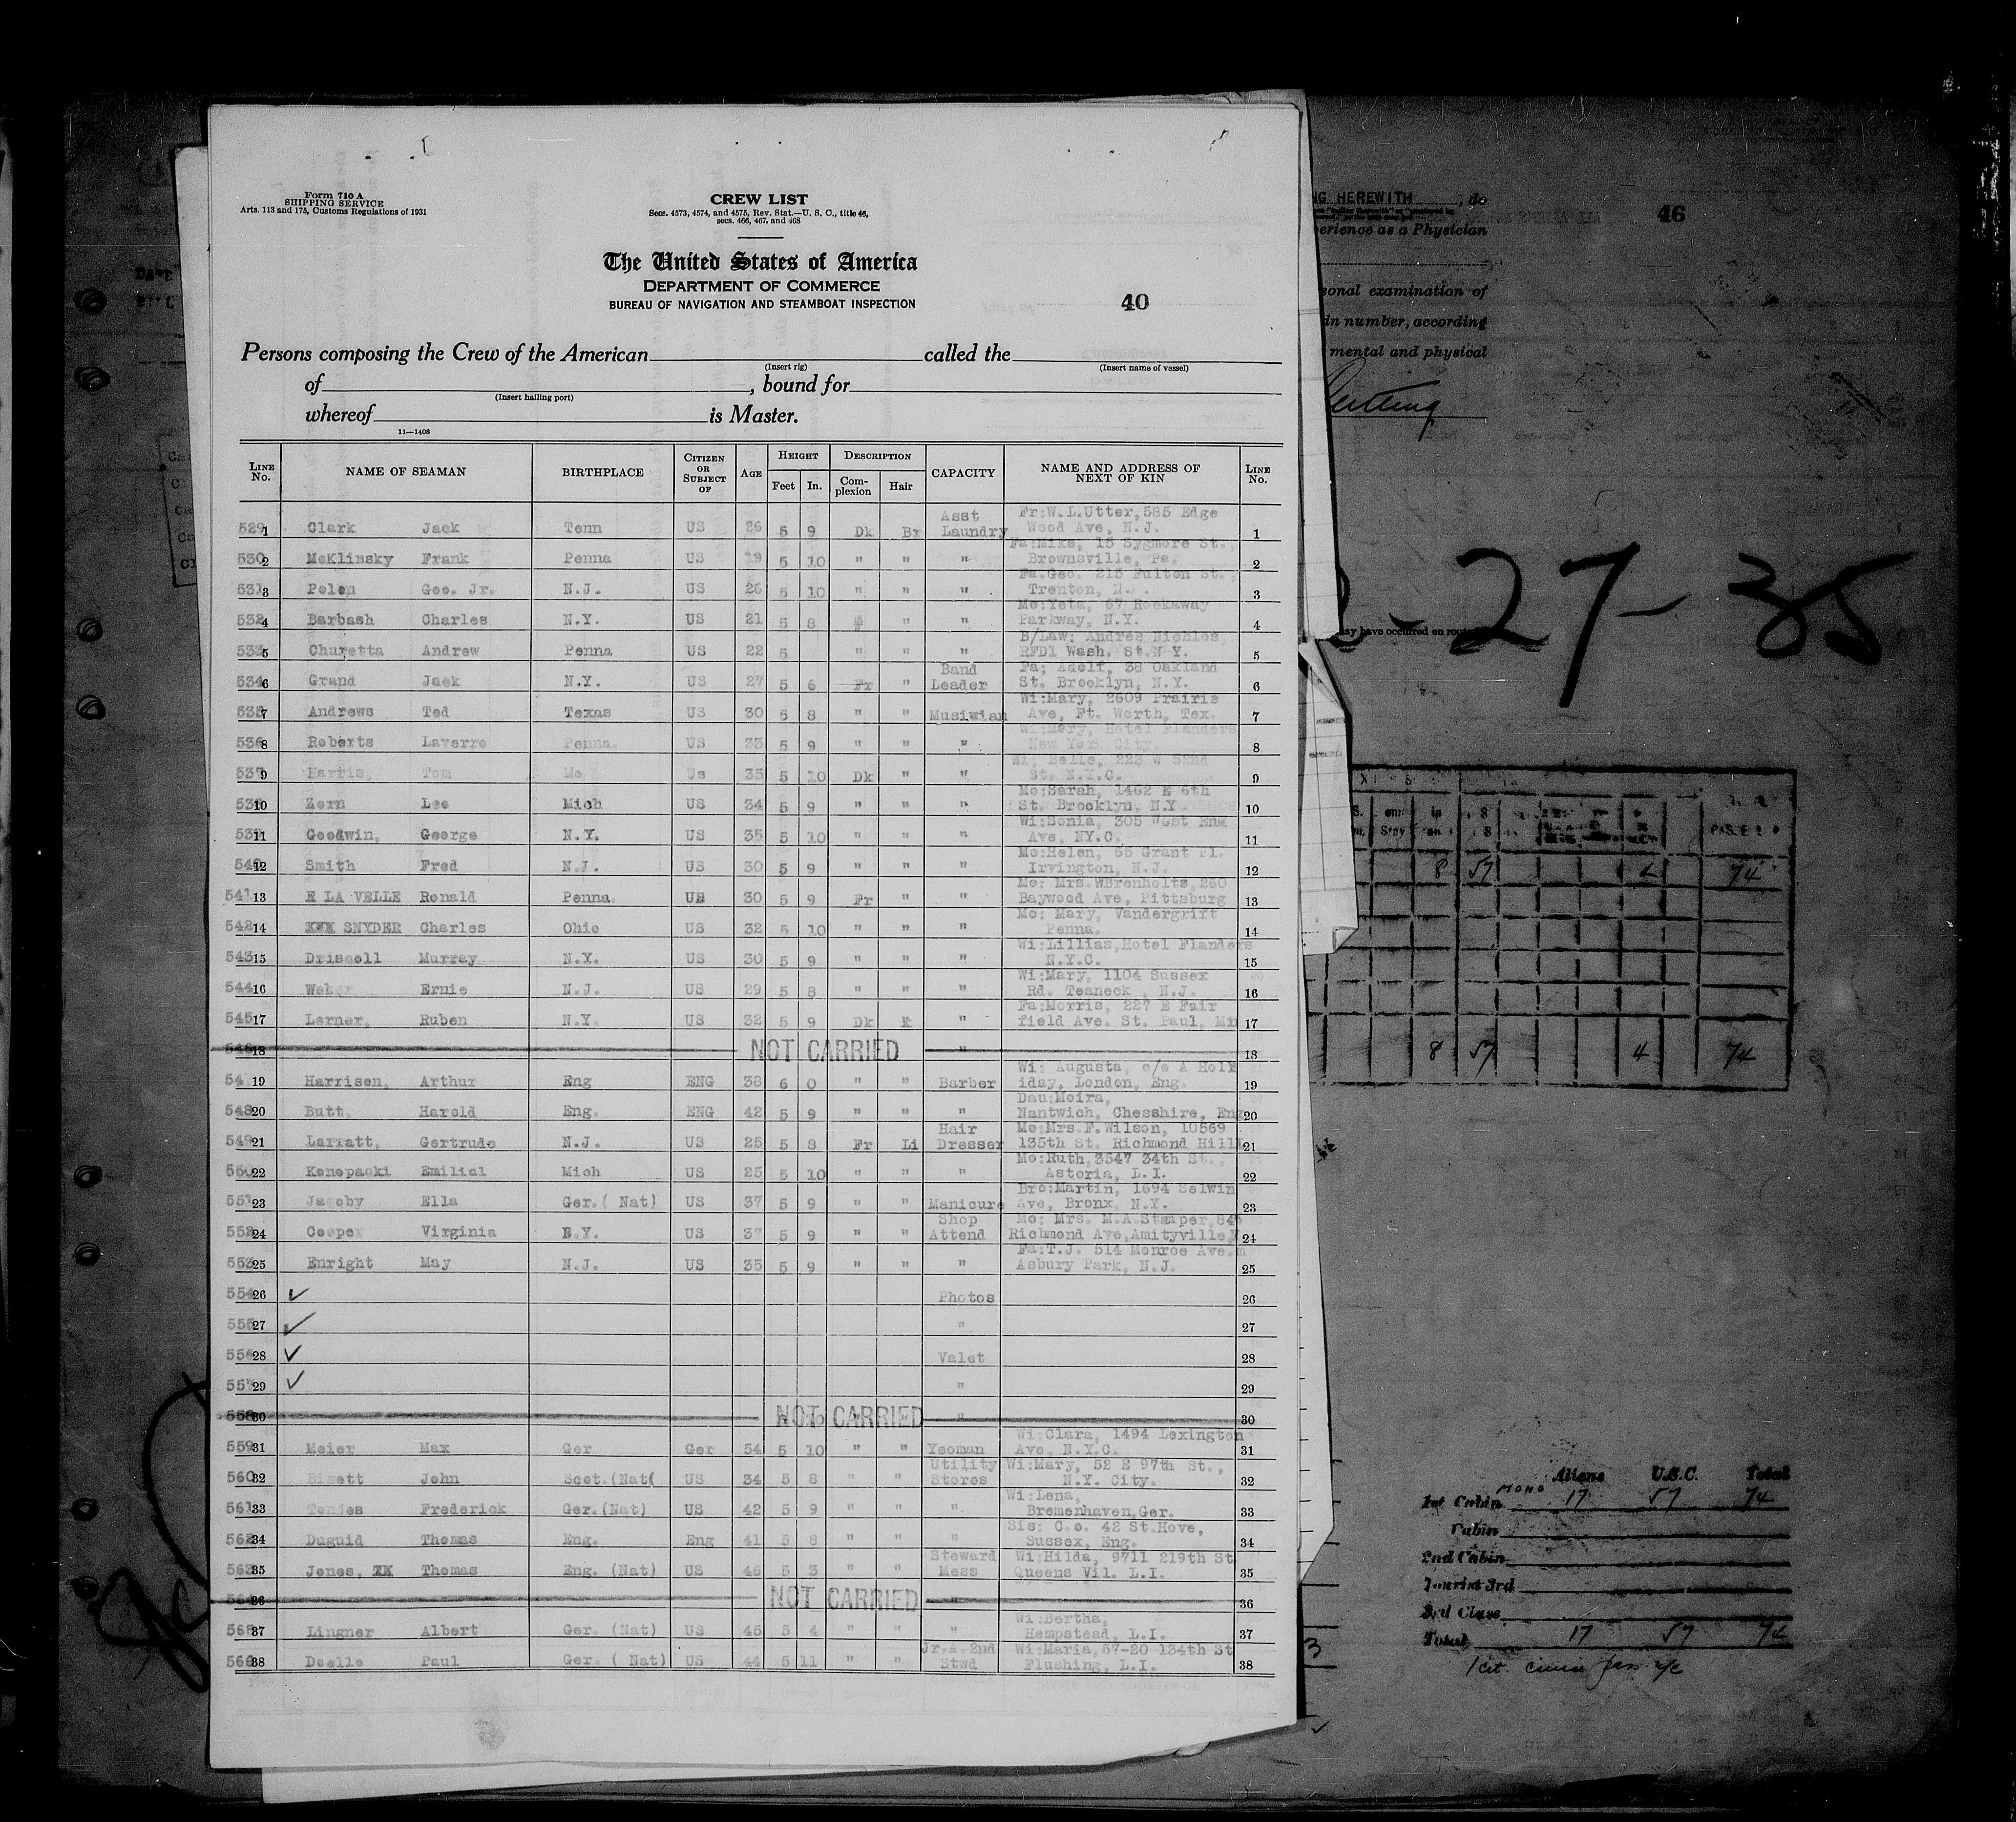 Form 710 A
SHIPPING SERVICE
Arts. 113 and 175, Customs Regulations of 1931
CREW LIST
Secs. 4573, 4574, and 4575, Rev. Stat.—U. S. C., title 46,
secs. 466, 467, and 468
The United States of America
DEPARTMENT OF COMMERCE
BUREAU OF NAVIGATION AND STEAMBOAT INSPECTION
40
Persons composing the Crew of the American called the
(Insert rig) (Insert name of vessel)
of , bound for
(Insert hailing port)
whereof is Master.
11—1408
LINE No. NAME OF SEAMAN BIRTHPLACE CITIZEN OR SUBJECT OF AGE HEIGHT Feet In. DESCRIPTION Complexion Hair CAPACITY NAME AND ADDRESS OF NEXT OF KIN LINE No.
Asst Fr:W.L.Utter,585 Edge
529 1 Clark Jack Tenn US 26 5 9 Dk Br Laundry Wood Ave, N.J. 1
Fa:Mike, 15 Sygmore St.,
530 2 McKlinsky Frank Penna US 19 5 10 " " " Brownsville, Pa. 2
Fa.Geo. 215 Fulton St.,
531 3 Polen Geo. Jr. N.J. US 26 5 10 " " " Trenton, N.J. 3
Mo:Yeta, 67 Rockaway
532 4 Barbash Charles N.Y. US 21 5 8 " " " Parkway, N.Y. 4
B/Law: Andrea Nichles,
533 5 Churetta Andrew Penna US 22 5 " " " RFD1 Wash. St.N Y. 5
Band Fa; Adolf, 38 Oakland
534 6 Grand Jack N.Y. US 27 5 6 Fr " Leader St. Brooklyn, N.Y. 6
Wi:Mary, 2609 Prairie
535 7 Andrews Ted Texas US 30 5 8 " " Musiwian Ave, Ft. Worth, Tex. 7
Wi:Mary, Hotel Flanders
536 8 Roberts Laverre Penna. US 33 5 9 " " " New York City. 8
Wi, Belle, 223 W 52nd
537 9 Harris, Tom Mo. Us 35 5 10 Dk " " St. N.Y.C. 9
Mo:Sarah, 1462 E 6th
538 10 Zorn Leo Mich US 34 5 9 " " " St. Brooklyn, N.Y. 10
Wi:Sonia, 305 West End
539 11 Goodwin, George N.Y. US 35 5 10 " " " Ave, NY.C. 11
Mo:Helen, 65 Grant Pl.
540 12 Smith Fred N.J. US 30 5 9 " " " Irvington, N.J. 12
Mo: Mrs.WBrenholts,260
541 13 E LA VELLE Ronald Penna. US 30 5 9 Fr " " Baywood Ave, Pittsburg 13
Mo: Mary, Vandergrift
542 14 XXX SNYDER Charles Ohio US 32 5 10 " " " Penna. 14
Wi:Lillias,Hotel Flanders
543 15 Driscoll Murray N.Y. US 30 5 9 " " " N.Y.C. 15
Wi:Mary, 1104 Sussex
544 16 Weber Ernie N.J. US 29 5 8 " " " Rd. Teaneck , N.J. 16
Fa:Morris, 227 E Fair
545 17 Lerner, Ruben N.Y. US 32 5 9 Dk " field Ave. St. Paul, Mi 17
546 18 NOT CARRIED " 18
Wi: Augusta, c/o A Holl
547 19 Harrison, Arthur Eng ENG 38 6 0 " " Barber iday, London, Eng. 19
Dau:Moira,
548 20 Butt, Harold Eng. ENG 42 5 9 " " " Nantwich, Chesshire, Eng 20
Hair Mo:Mrs.F.Wilson, 10569
549 21 Larratt, Gertrude N.J. US 25 5 8 Fr Li Dresser 135th St. Richmond Hill 21
Mo:Ruth,3547 34th St.,
550 22 Konopacki Emilial Mich US 25 5 10 " " " Astoria, L.I. 22
Bro:Martin, 1694 Selwin
551 23 Jacoby Ella Ger.( Nat) US 37 5 9 " " Manicure Ave, Bronx, N.Y. 23
Shop Mo: Mrs. M.A.Stamper,845
552 24 Cooper Virginia N.Y. US 37 5 9 " " Attend Richmond Ave,Amityville 24
Fa:T.J. 514 Monroe Ave.
553 25 Enright May N.J. US 35 5 9 " " " Asbury Park, N.J. 25
554 26 ✓ Photos 26
555 27 ✓ " 27
556 28 ✓ Valet 28
557 29 ✓ " 29
558 30 NOT CARRIED " 30
Wi:Clara, 1494 Lexington
559 31 Meier Max Ger Ger 54 5 10 " " Yeoman Ave, N.Y.C. 31
Utility Wi:Mary, 52 E 97th St.,
560 32 Bisett John Scot.(Nat( US 34 5 8 " " Stores N.Y. City. 32
Wi:Lena,
561 33 Tonies Frederick Ger.(Nat) US 42 5 9 " " " Bremenhaven,Ger. 33
Sis: C.o. 42 St.Hove,
562 34 Duguid Thomas Eng. Eng 41 5 8 " " " Sussex, Eng. 34
Steward Wi:Hilda, 9711 219th St
563 35 Jones, XX Thomas Eng. (Nat) US 46 5 3 " " Mess Queens Vil. L.I. 35
564 36 NOT CARRIED " 36
Wi:Bertha,
565 37 Lingner Albert Ger. (Nat) US 45 5 4 " " " Hempstead, L.I. 37
Jr.A.2nd Wi:Maria,57-20 134th St
566 38 Doelle Paul Ger. ( Nat) US 44 5 11 " " Stwd Flushing, L.I. 38
NG HEREWITH , do
46
perience as a Physician
sonal examination of
in number, according
mental and physical
27-35
may have occurred en route
8 57 74
8 57 4 74
Aliens U.S.C. Total
1st Cabin MONO 17 57 74
Cabin
2nd Cabin
Tourist 3rd
3rd Class
Total 17 57 74
3